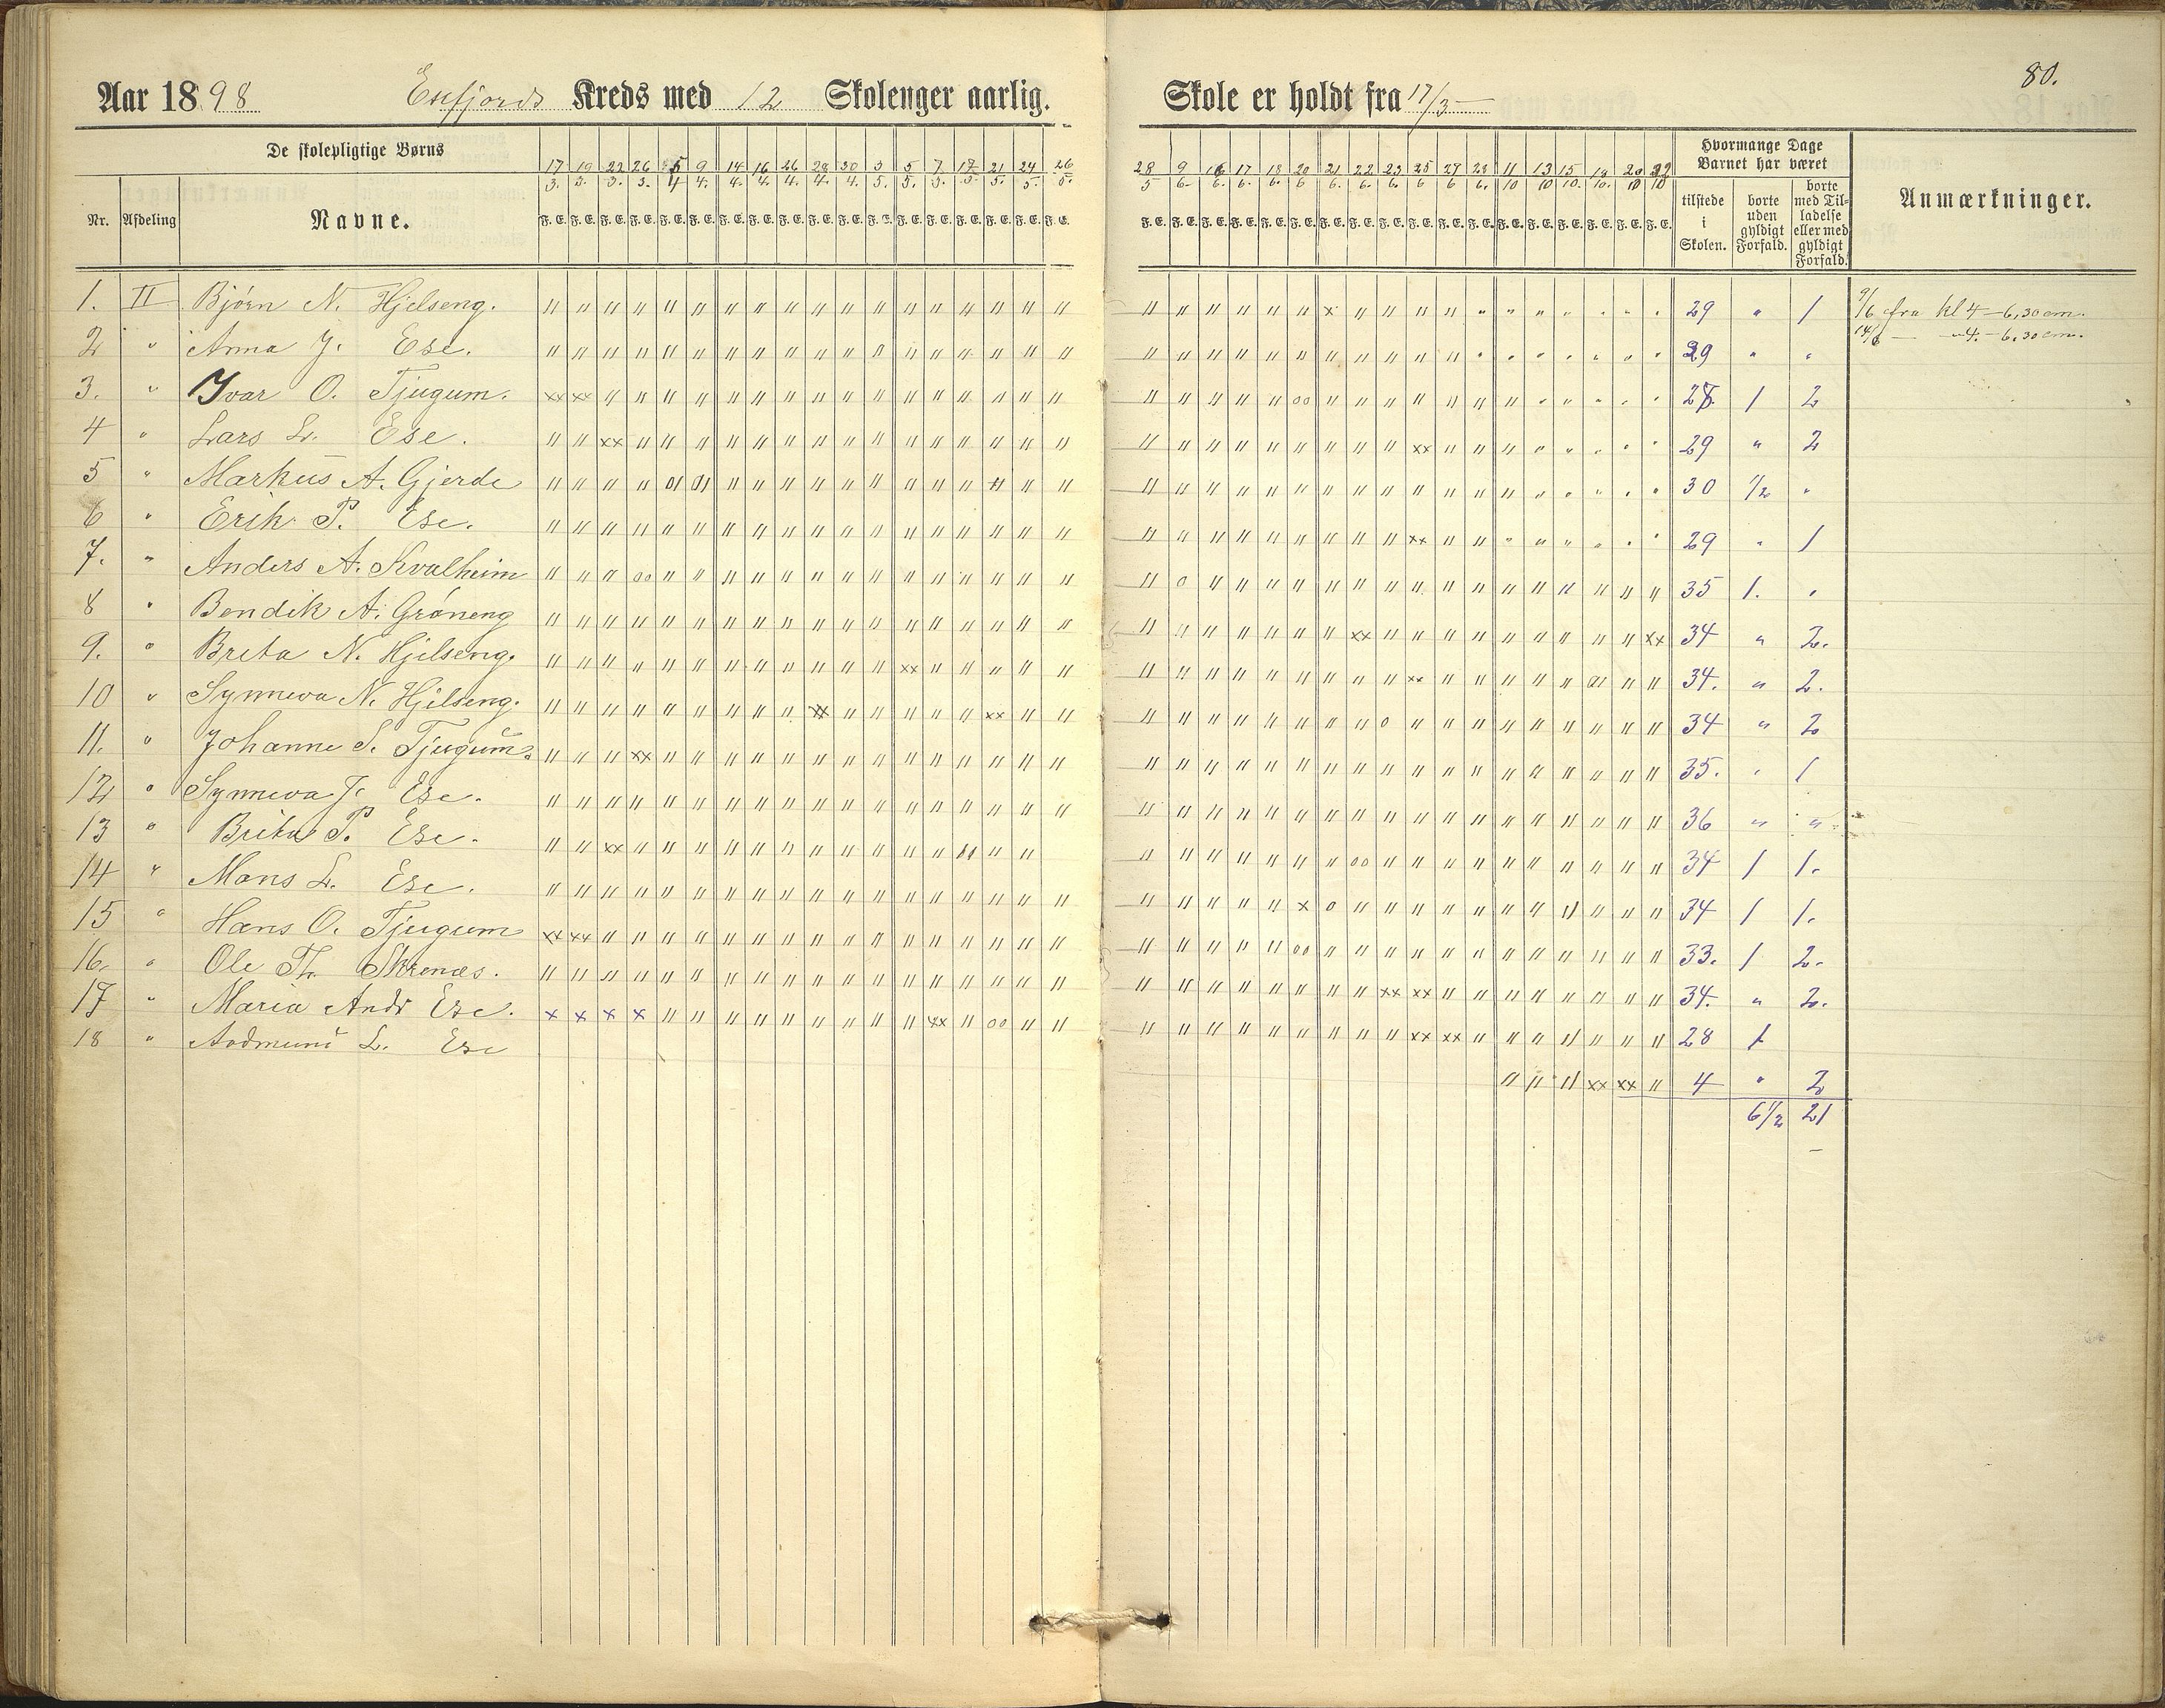 80.
Aar 1898 Esefjords Kreds med 12 Skolenger aarlig. Skole er holdt fra 17/3 —
De skolepligtige Børns
Hvormange Dage Barnet har været
Nr. Afdeling Navne.
17/3. 19/3. 22/3. 26/3. 5/4 9/4. 14/4. 16/4. 26/4. 28/4. 30/4. 3/5. 5/5. 7/5. 17/5. 21/5. 24/5. 26/5. 28/5 9/6. 16/6. 17/6. 18/6. 20/6 21/6. 22/6. 23/6. 25/6 27/6 28/6. 11/10 13/10 15/10. 19/10. 20/10 22/10
F. E. F. E. F. E. F. E. F. E. F. E. F. E. F. E. F. E. F. E. F. E. F. E. F. E. F. E. F. E. F. E. F. E. F. E. F. E. F. E. F. E. F. E. F. E. F. E. F. E. F. E. F. E. F. E. F. E. F. E. F. E. F. E. F. E. F. E. F. E. F. E.
tilstede i Skolen. borte uden gyldigt Forfald. borte med Tilladelse eller med gyldigt Forfald. Anmærkninger.
1. II Bjørn N. Hjelseng. 29 " 1 9/6 fra kl 4 – 6,30 em.
14/6 — " 4. – 6,30 em.
2 " Anna J. Ese. 29 " "
3. " Ivar O. Tjugum. 27. 1 2
4 " Lars L. Ese. 29 " 2
5 " Markus A. Gjerde 30 1/2 "
6 " Erik P. Ese. 29 " 1
7. " Anders A. Kvalheim 35 1. "
8 " Bendik A. Grøneng 34 " 2.
9. " Brita N. Hjelseng. 34. " 2.
10 " Synneva N. Hjelseng. 34 " 2
11. " Johanne S. Tjugum. 35. " 1
12 " Synneva J. Ese. 36 " "
13 " Brita P. Ese. 34 1 1.
14 " Mons L. Ese. 34 1 1.
15 " Hans O. Tjugum 33. 1 2.
16. " Ole Th. Skrenæs. 34. " 2.
17 " Maria Andr Ese. 28 1
18 " Audmund L. Ese 4 " 2
6 1/2 21